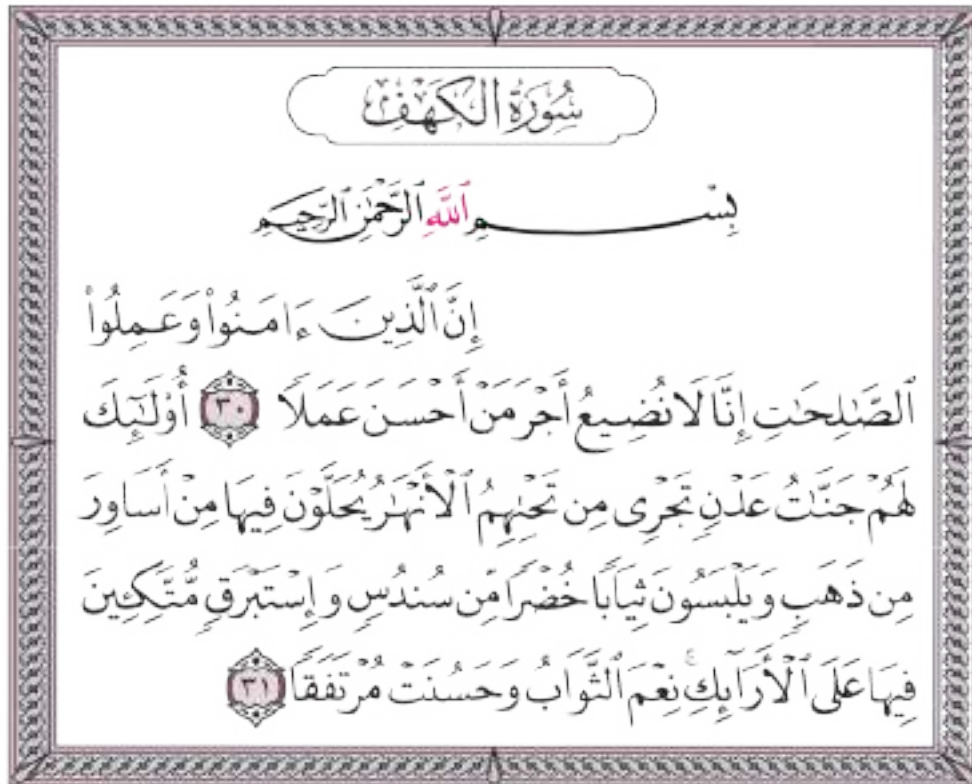 سُورَةُ الْكَهْفِ
بِسْمِ ٱللَّهِ ٱلرَّحْمَٰنِ ٱلرَّحِيمِ
إِنَّ ٱلَّذِينَ ءَامَنُوا۟ وَعَمِلُوا۟
ٱلصَّٰلِحَٰتِ إِنَّا لَا نُضِيعُ أَجْرَ مَنْ أَحْسَنَ عَمَلًا ٣٠ أُو۟لَٰٓئِكَ
لَهُمْ جَنَّٰتُ عَدْنٍ تَجْرِى مِن تَحْتِهِمُ ٱلْأَنْهَٰرُ يُحَلَّوْنَ فِيهَا مِنْ أَسَاوِرَ
مِن ذَهَبٍ وَيَلْبَسُونَ ثِيَابًا خُضْرًا مِّن سُندُسٍ وَإِسْتَبْرَقٍ مُّتَّكِـِٔينَ
فِيهَا عَلَى ٱلْأَرَآئِكِ ۚ نِعْمَ ٱلثَّوَابُ وَحَسُنَتْ مُرْتَفَقًا ٣١